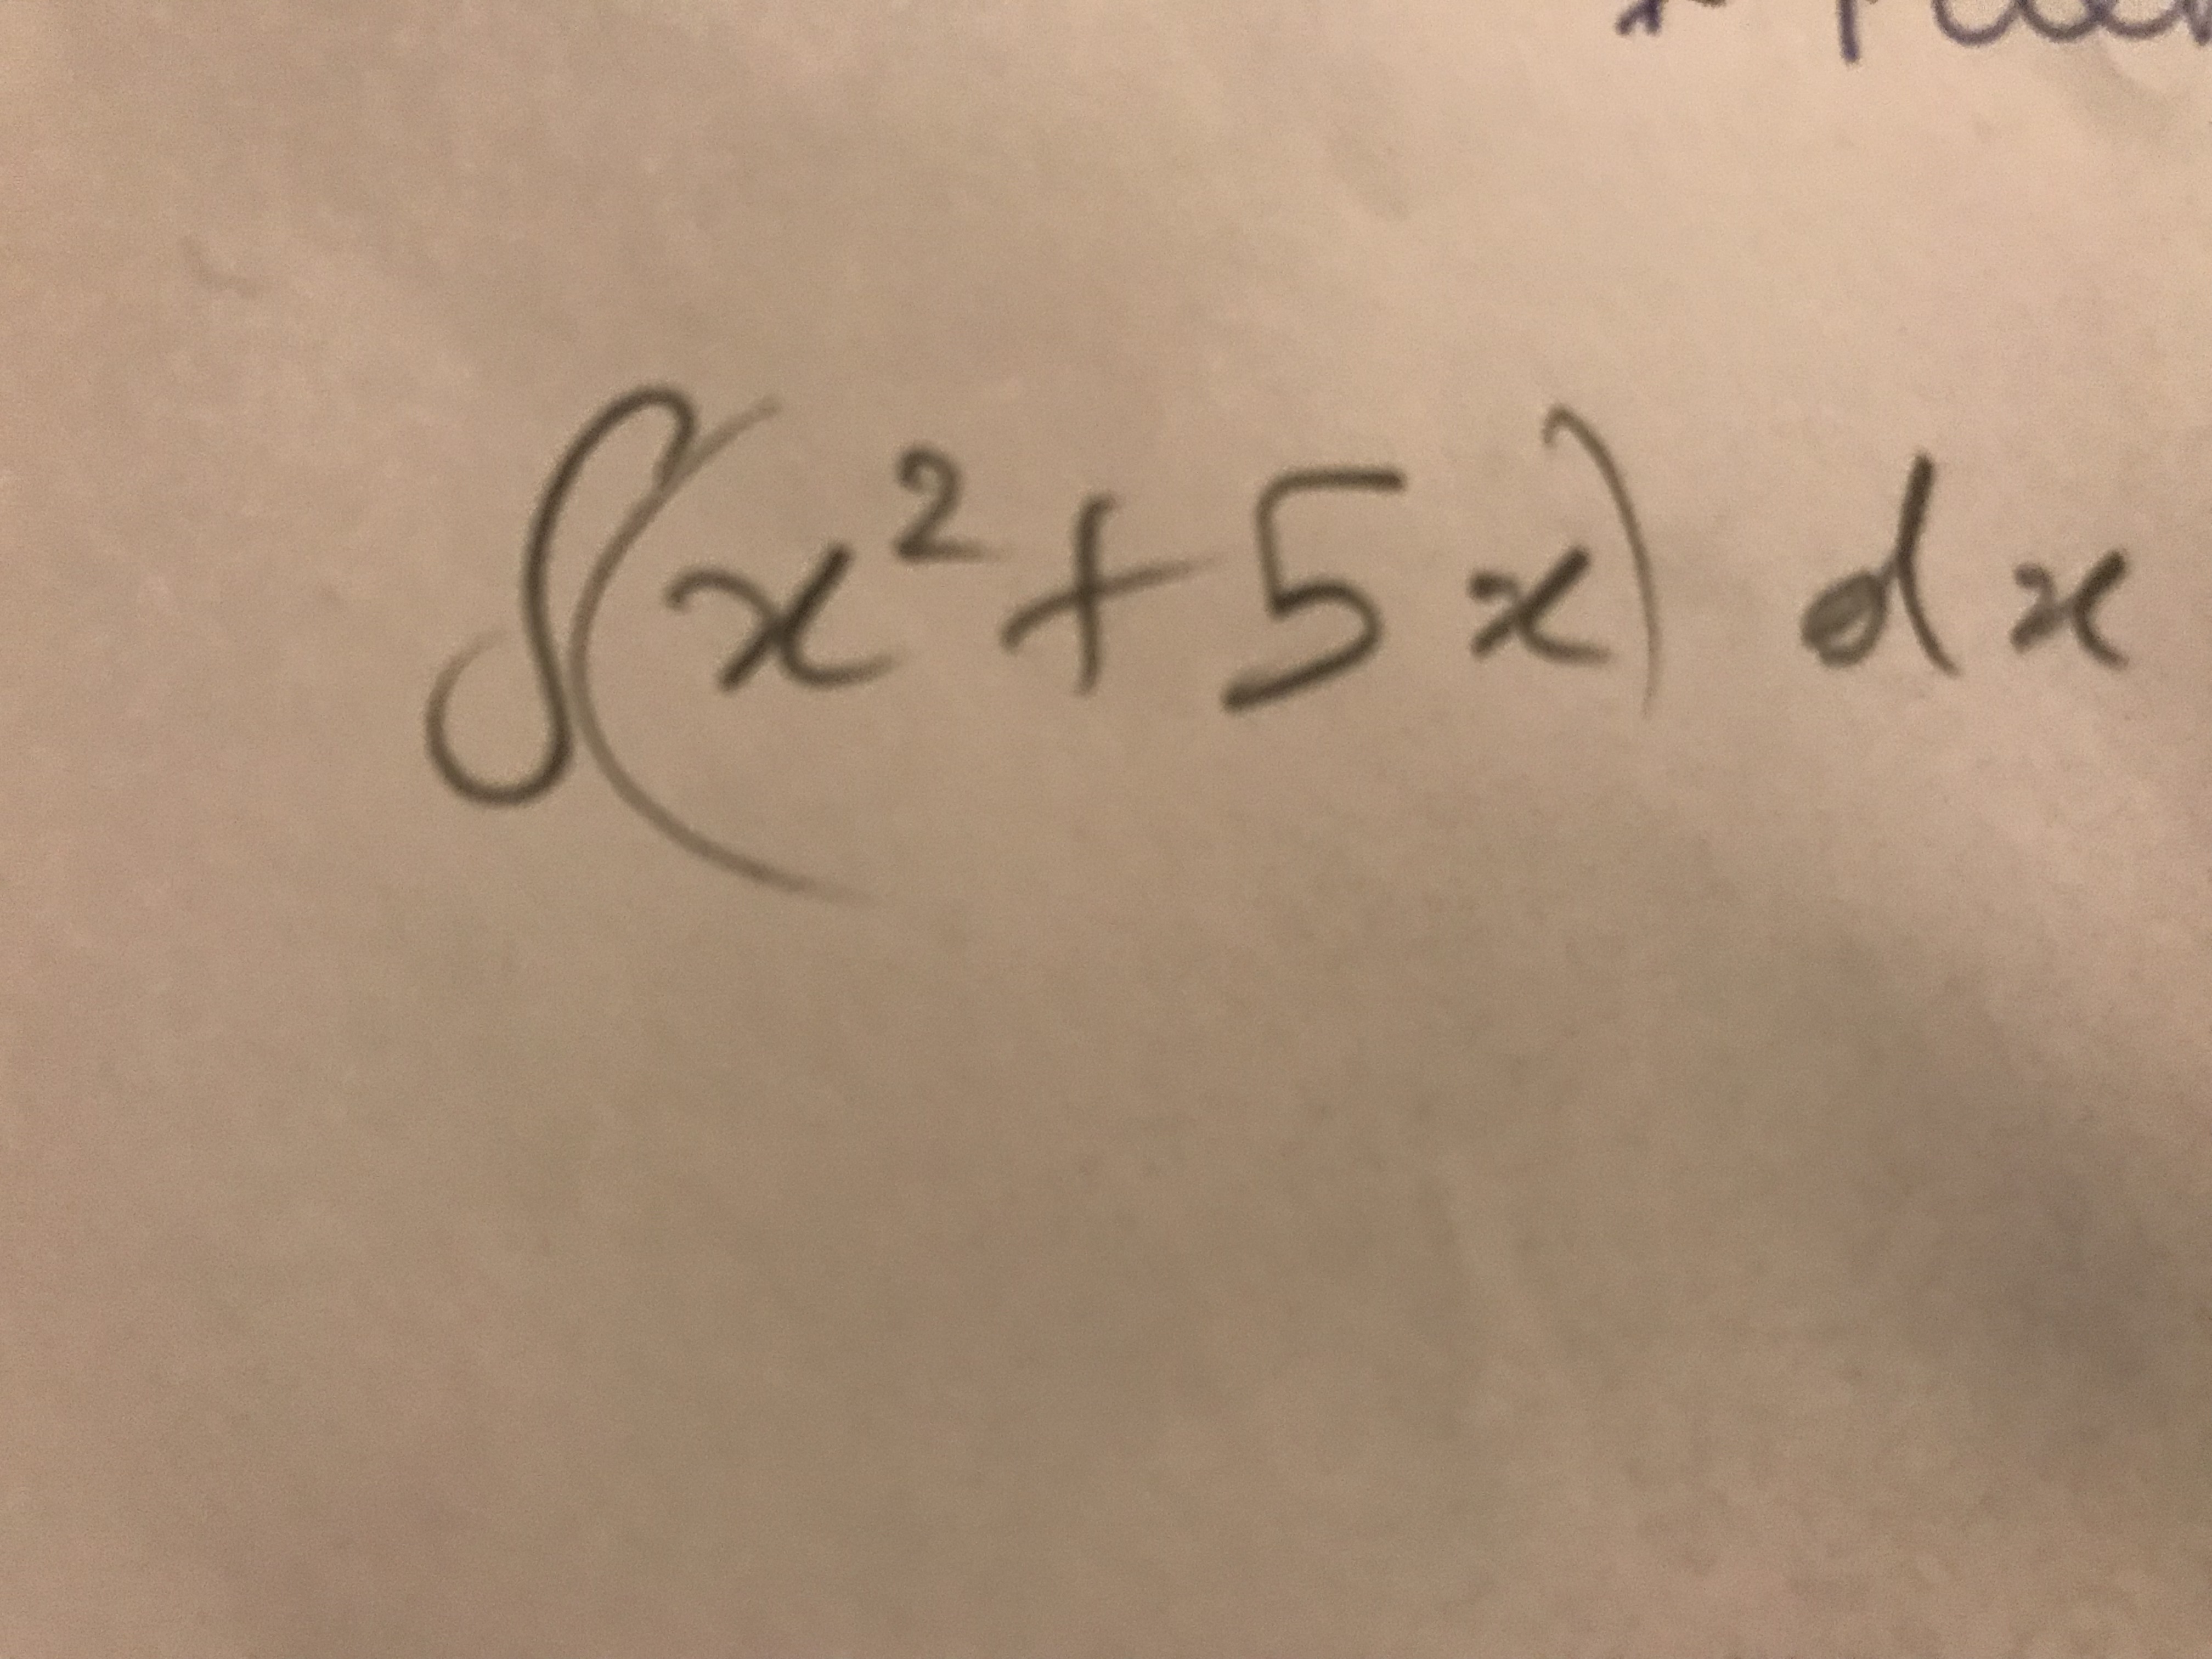 ∫(x² + 5x) dx